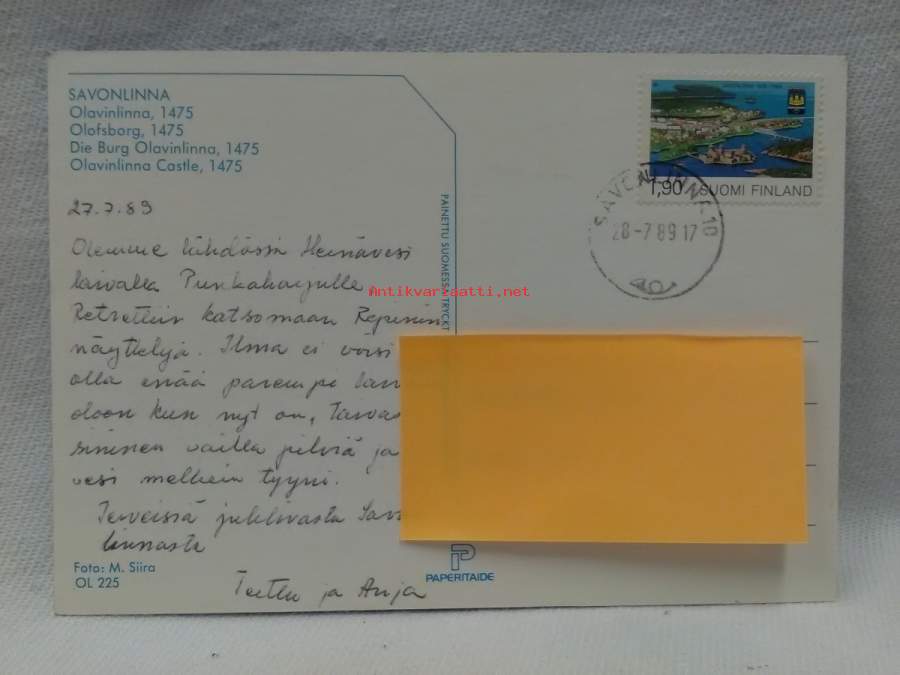 SAVONLINNA
Olavinlinna, 1475
Olofsborg, 1475
Die Burg Olavinlinna, 1475
Olavinlinna Castle, 1475
27.7.89
Olemme lähdössä Heinävesi
laivalla Punkaharjulle
Retrettiin katsomaan Repinin
näyttelyä. Ilma ei voisi
olla enää parempi
oloon kun nyt on, Taivas
sininen vailla pilviä ja
vesi melkein tyyni.
Terveisiä juhlivasta Savon
linnasta
ja Anja
Foto: M. Siira
OL 225
PAINETTU SUOMESSA/TRYCKT
PAPERITAIDE
Antikvariaatti.net
1,90 SUOMI FINLAND
SAVONLINNA 10
28-7 89 17